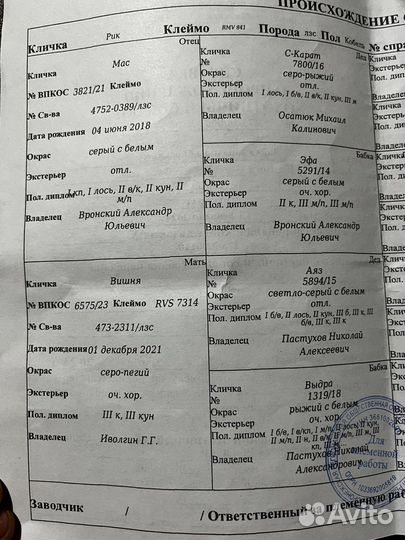 ПРОИСХОЖДЕНИЕ
Кличка Рик Клеймо RMV 841 Порода лзс Пол Кобель № спра
Отец
Кличка Мас
№ ВПКОС 3821/21 Клеймо
№ Св-ва 4752-0389/лзс
Дата рождения 04 июня 2018
Окрас серый с белым
Экстерьер отл.
Пол. диплом I кп, I лось, II в/к, II кун, II м/п
Владелец Вронский Александр Юльевич
Дед
Кличка С-Карат
№ 7800/16
Окрас серо-рыжий
Экстерьер отл.
Пол. диплом I лось, I б/в, II в/к, II кун, III м
Владелец Осатюк Михаил Калинович
Бабка
Кличка Эфа
№ 5291/14
Окрас серый с белым
Экстерьер оч. хор.
Пол. диплом II к, III м/п, III м
Владелец Вронский Александр Юльевич
Мать
Кличка Вишня
№ ВПКОС 6575/23 Клеймо RVS 7314
№ Св-ва 473-2311/лзс
Дата рождения 01 декабря 2021
Окрас серо-пегий
Экстерьер оч. хор.
Пол. диплом III к, III кун
Владелец Иволгин Г.Г.
Дед
Кличка Аяз
№ 5894/15
Окрас светло-серый с белым
Экстерьер отл.
Пол. диплом I б/в, II лось, II кун, III б, III к, III б/в, III к, III к
Владелец Пастухов Николай Алексеевич
Бабка
Кличка Выдра
№ 1319/18
Окрас рыжий с белым
Экстерьер оч. хор.
Пол. диплом
Владелец Пастухов Николай Александрович
Для племенной работы
Заводчик / / Ответственный за племенную раб
Avito